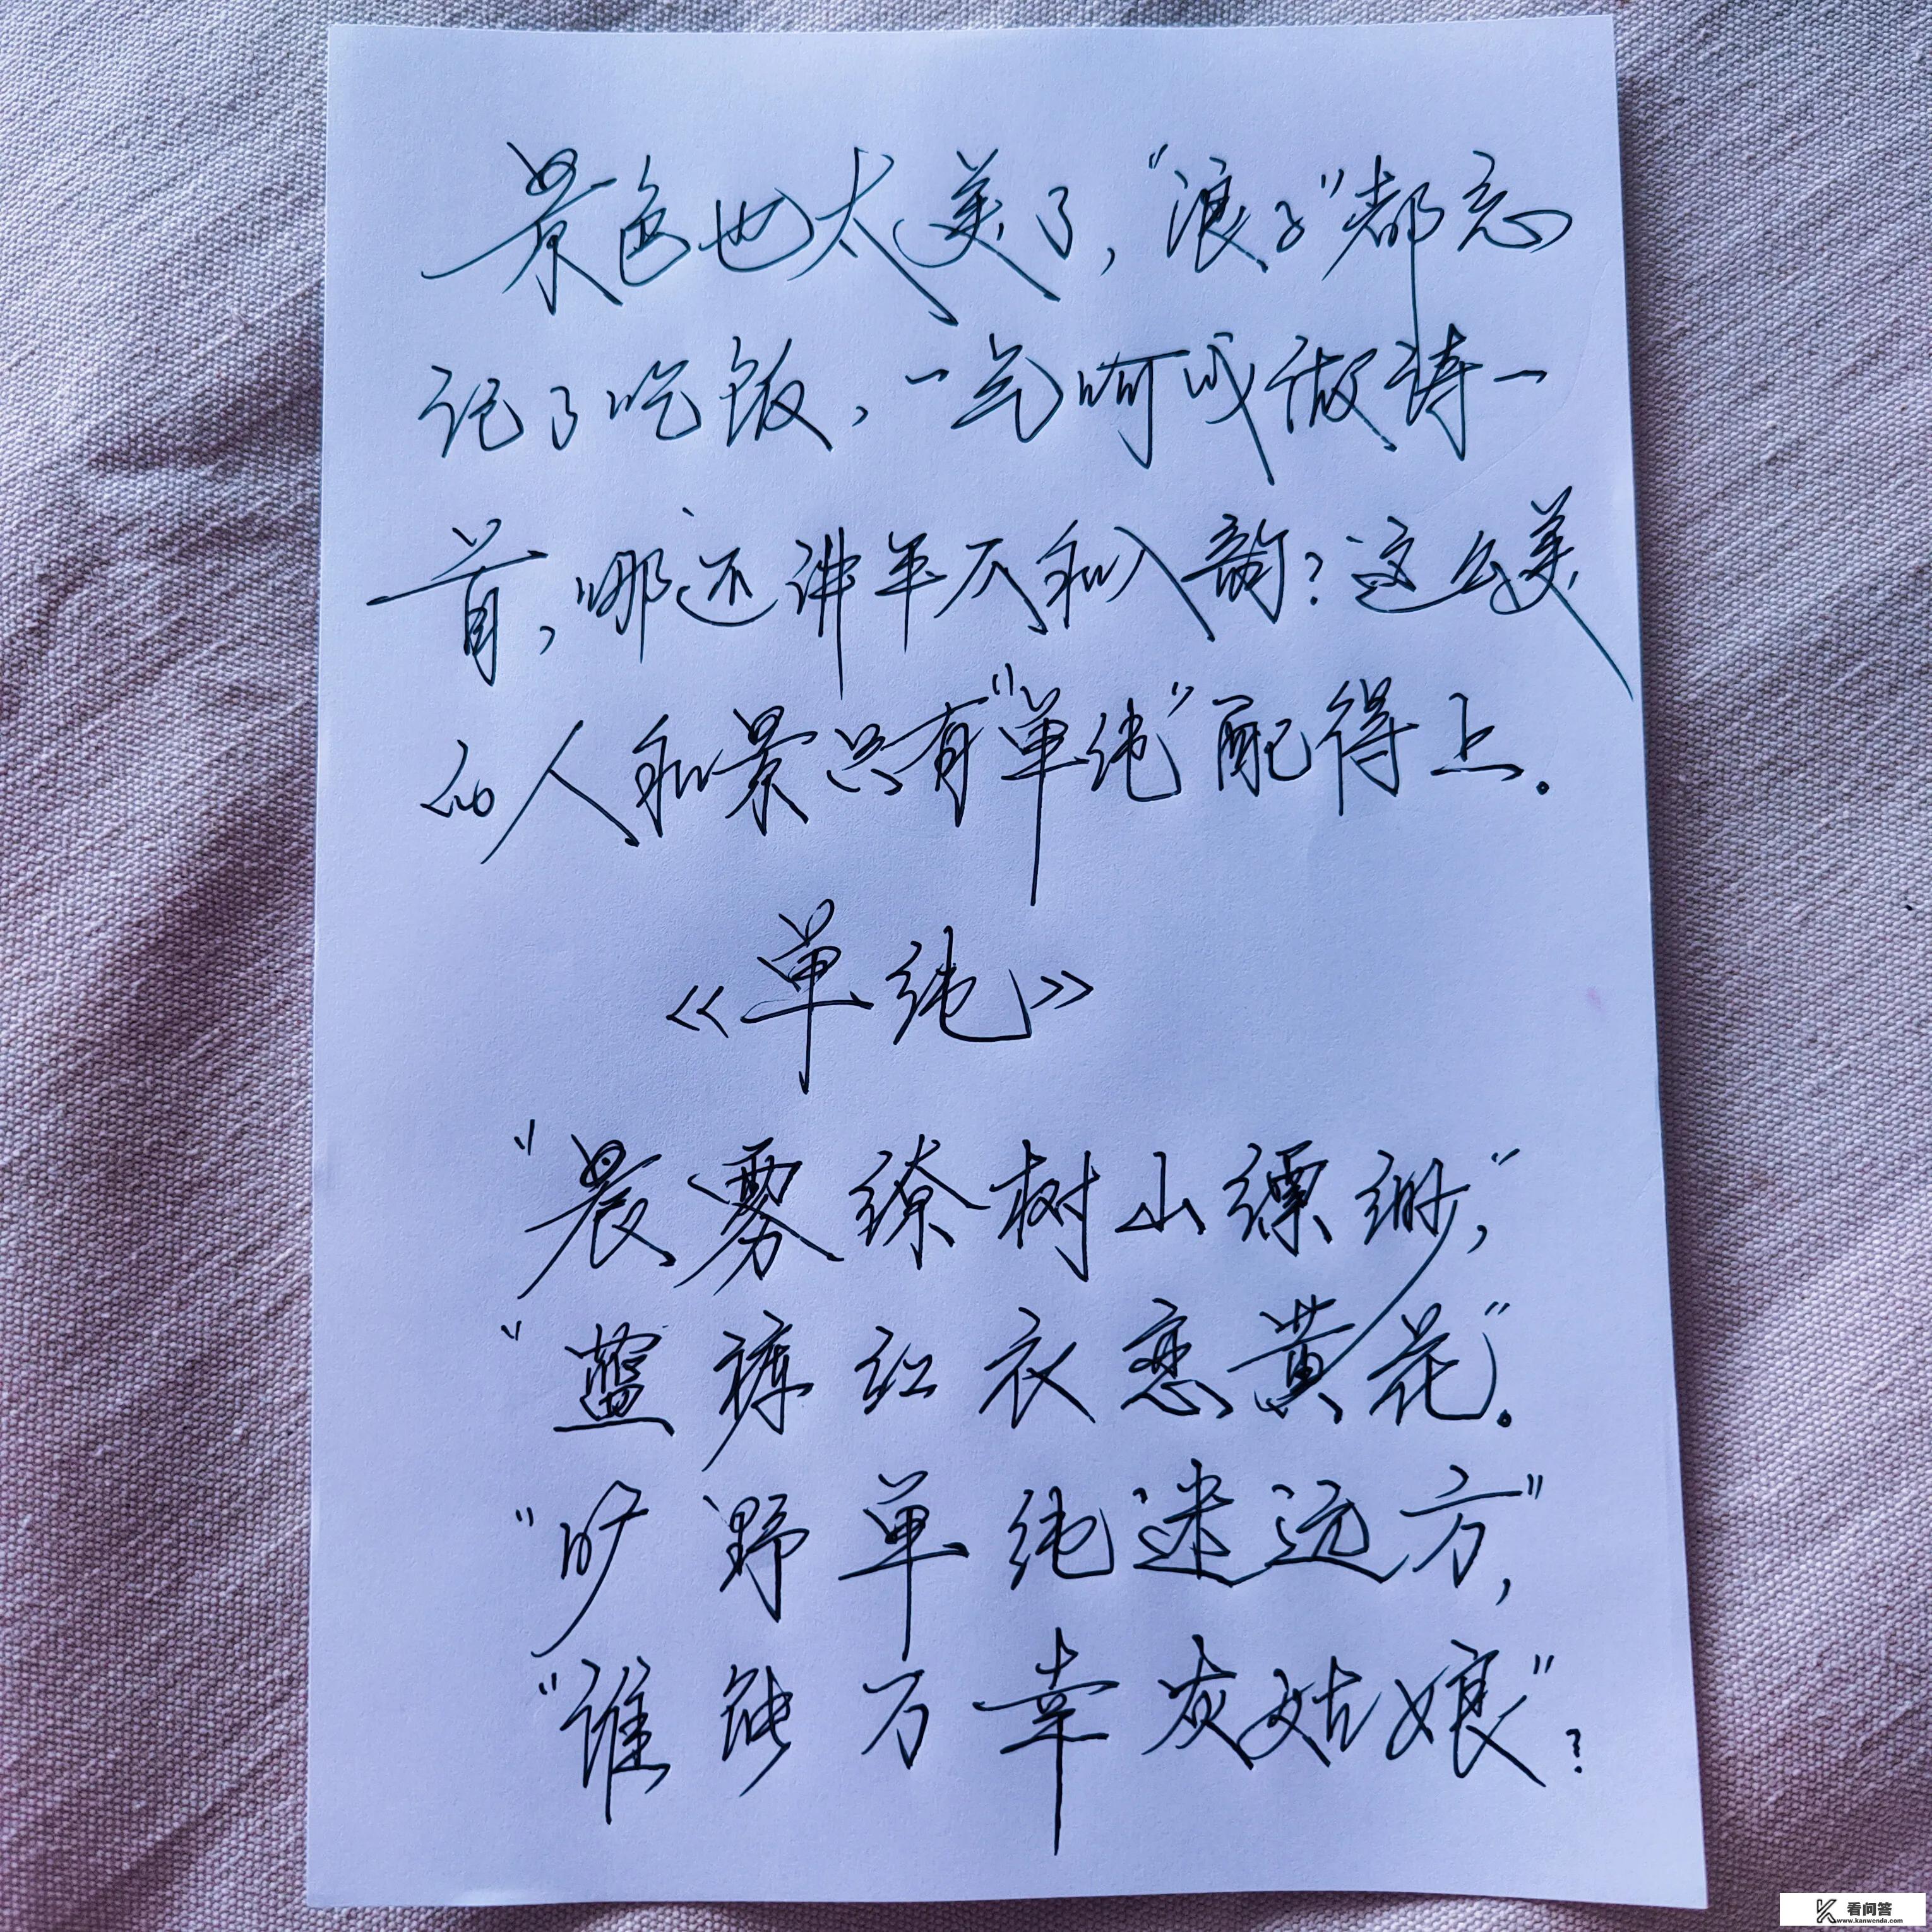 景色也太美了，“浪子”都忘
记了吃饭，一气呵成做诗一
首，哪还讲平仄和入韵？这么美
的人和景只有“单纯”配得上。
《单纯》
“晨雾缭树山缥缈，”
“蓝裤红衣恋黄花”。
“旷野单纯迷远方”，
“谁能万幸灰姑娘”？
看问答
www.kanwenda.com